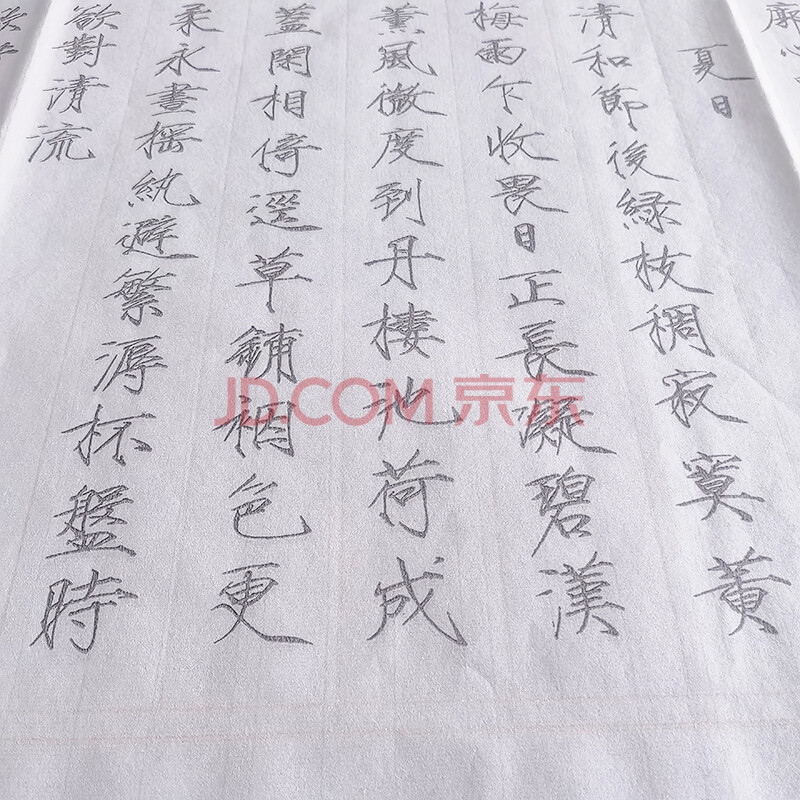 夏日
清和節後緑枝稠寂寞黄
梅雨乍收畏日正長凝碧漢
薰風微度到丹樓池荷成
蓋閑相倚逕草鋪裀色更
柔永晝搖紈避繁溽杯盤時
欲對清流
JD.COM 京东